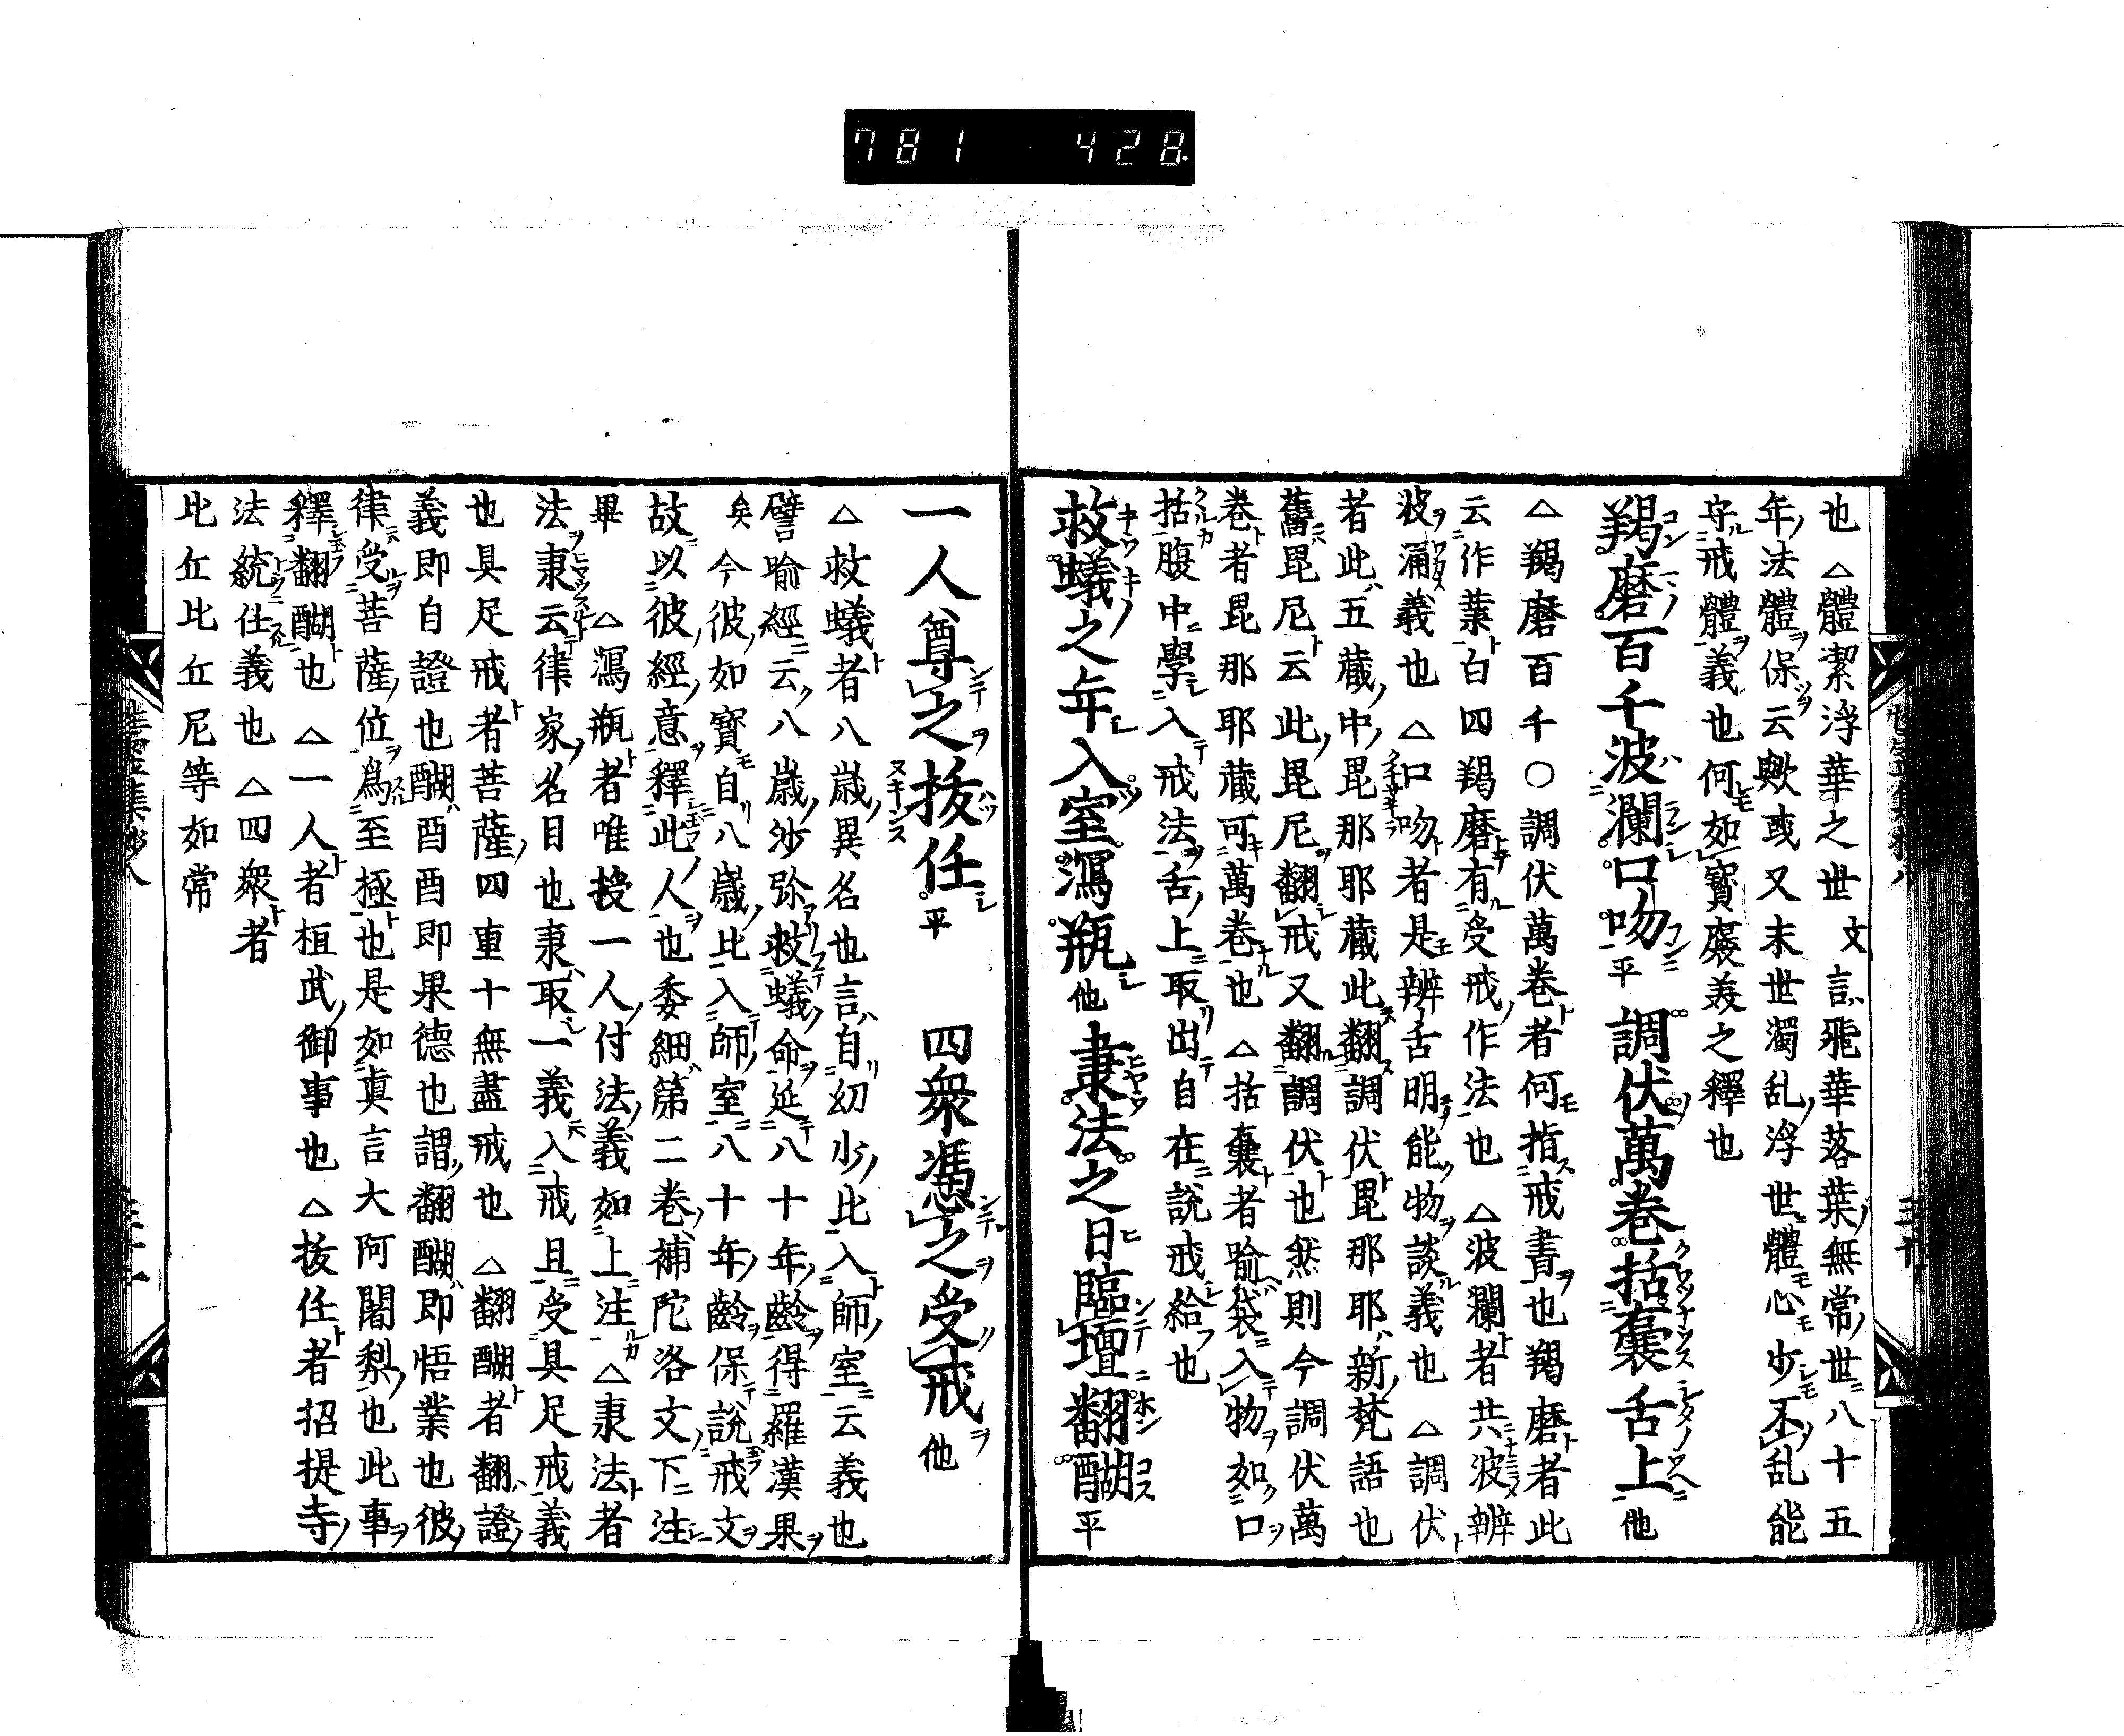 781 428
也△體潔浮華之世文言飛華落葉無常世八十五
年法體保云歟或又末世濁乱浮世體心少不乱能
守戒體義也何如寳窟美之釋也
羯磨百千波瀾口吻平 調伏萬卷括囊舌上他
△羯磨百千○調伏萬卷者何指戒書也羯磨者此
云作業白四羯磨有受戒作法也△波瀾者共波辨
波涌義也△口吻者是辨舌明能物談義也△調伏
者此五藏中毘那耶藏此翻調伏毘那耶新梵語也
舊毘尼云此毘尼翻戒又翻調伏也然則今調伏萬
卷者毘那耶藏可萬卷也△括囊者喻袋入物如口
括腹中學入戒法舌上取出自在說戒給也
救蟻之年入室瀉瓶他 隶法之日臨壇翻醐平
一人尊之拔任平 四衆憑之受戒他
△救蟻者八歲異名也言自幼少比入師室云義也
譬喻經云八歲沙弥救蟻命延八十年齡得羅漢果
矣今彼如寳自八歲比入師室八十年齡保說戒文
故以彼經意釋此人也委細第二卷補陀洛文下注
畢△瀉瓶者唯授一人付法義如上注△隶法者
法隶云律家名目也隶取一義入戒且受具足戒義
也具足戒者菩薩四重十無盡戒也△翻醐者翻證
義即自證也醐酉酉即果德也謂翻醐即悟業也彼
律受菩薩位爲至極也是如真言大阿闍梨也此事
釋翻醐也△一人者桓武御事也△拔任者招提寺
法統任義也△四衆者
比丘比丘尼等如常